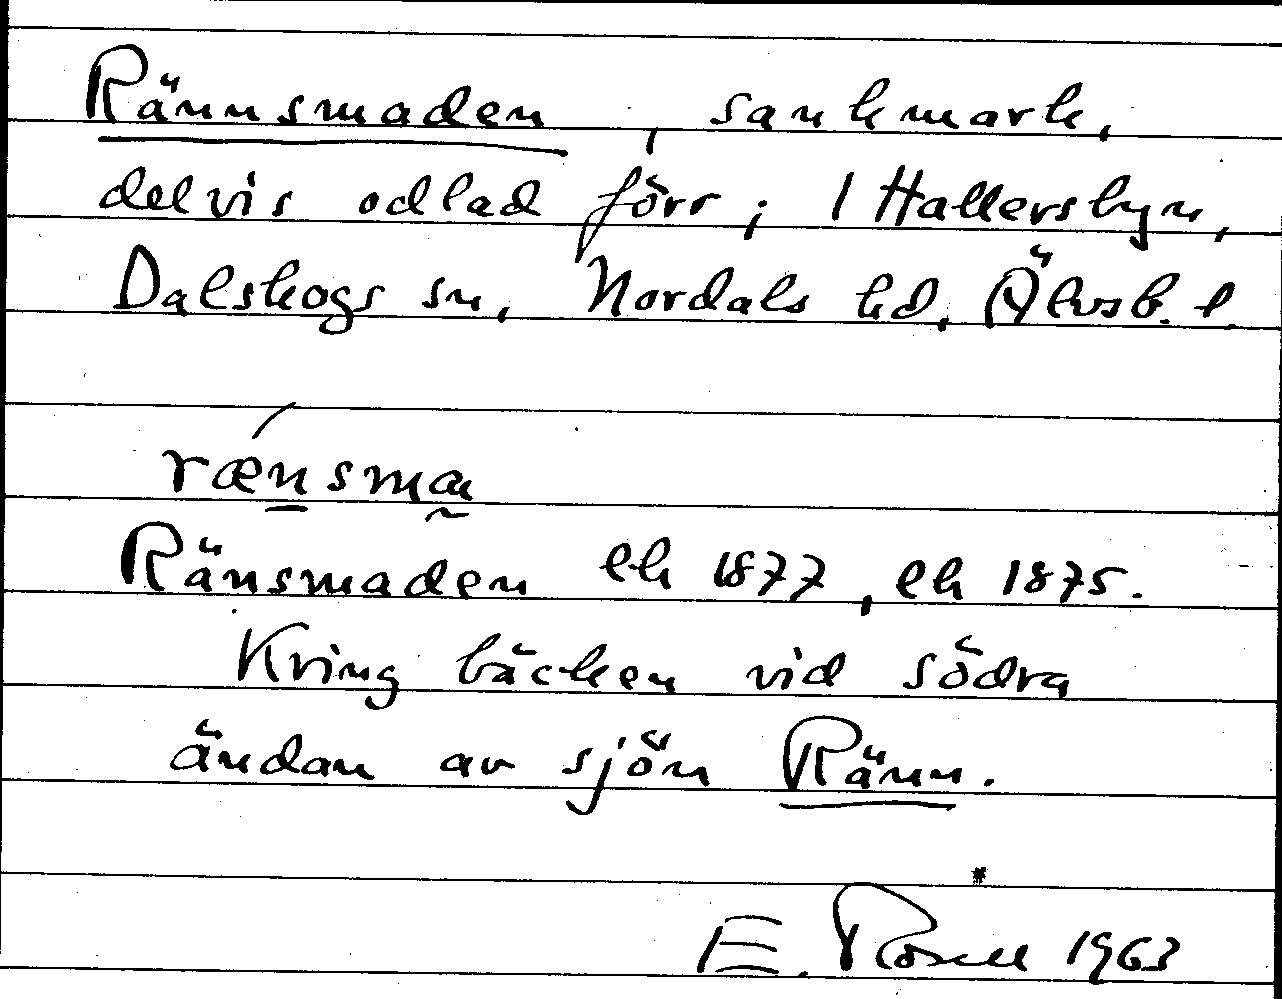 Rännsmaden, sankmark,
delvis odlad förr; 1 Hallersbyn,
Dalskogs sn, Nordals hd, Älvsb. l.
rænsma
Ränsmaden ek 1877, ek 1875.
Kring bäcken vid södra
ändan av sjön Ränn.
E. Rosell 1963